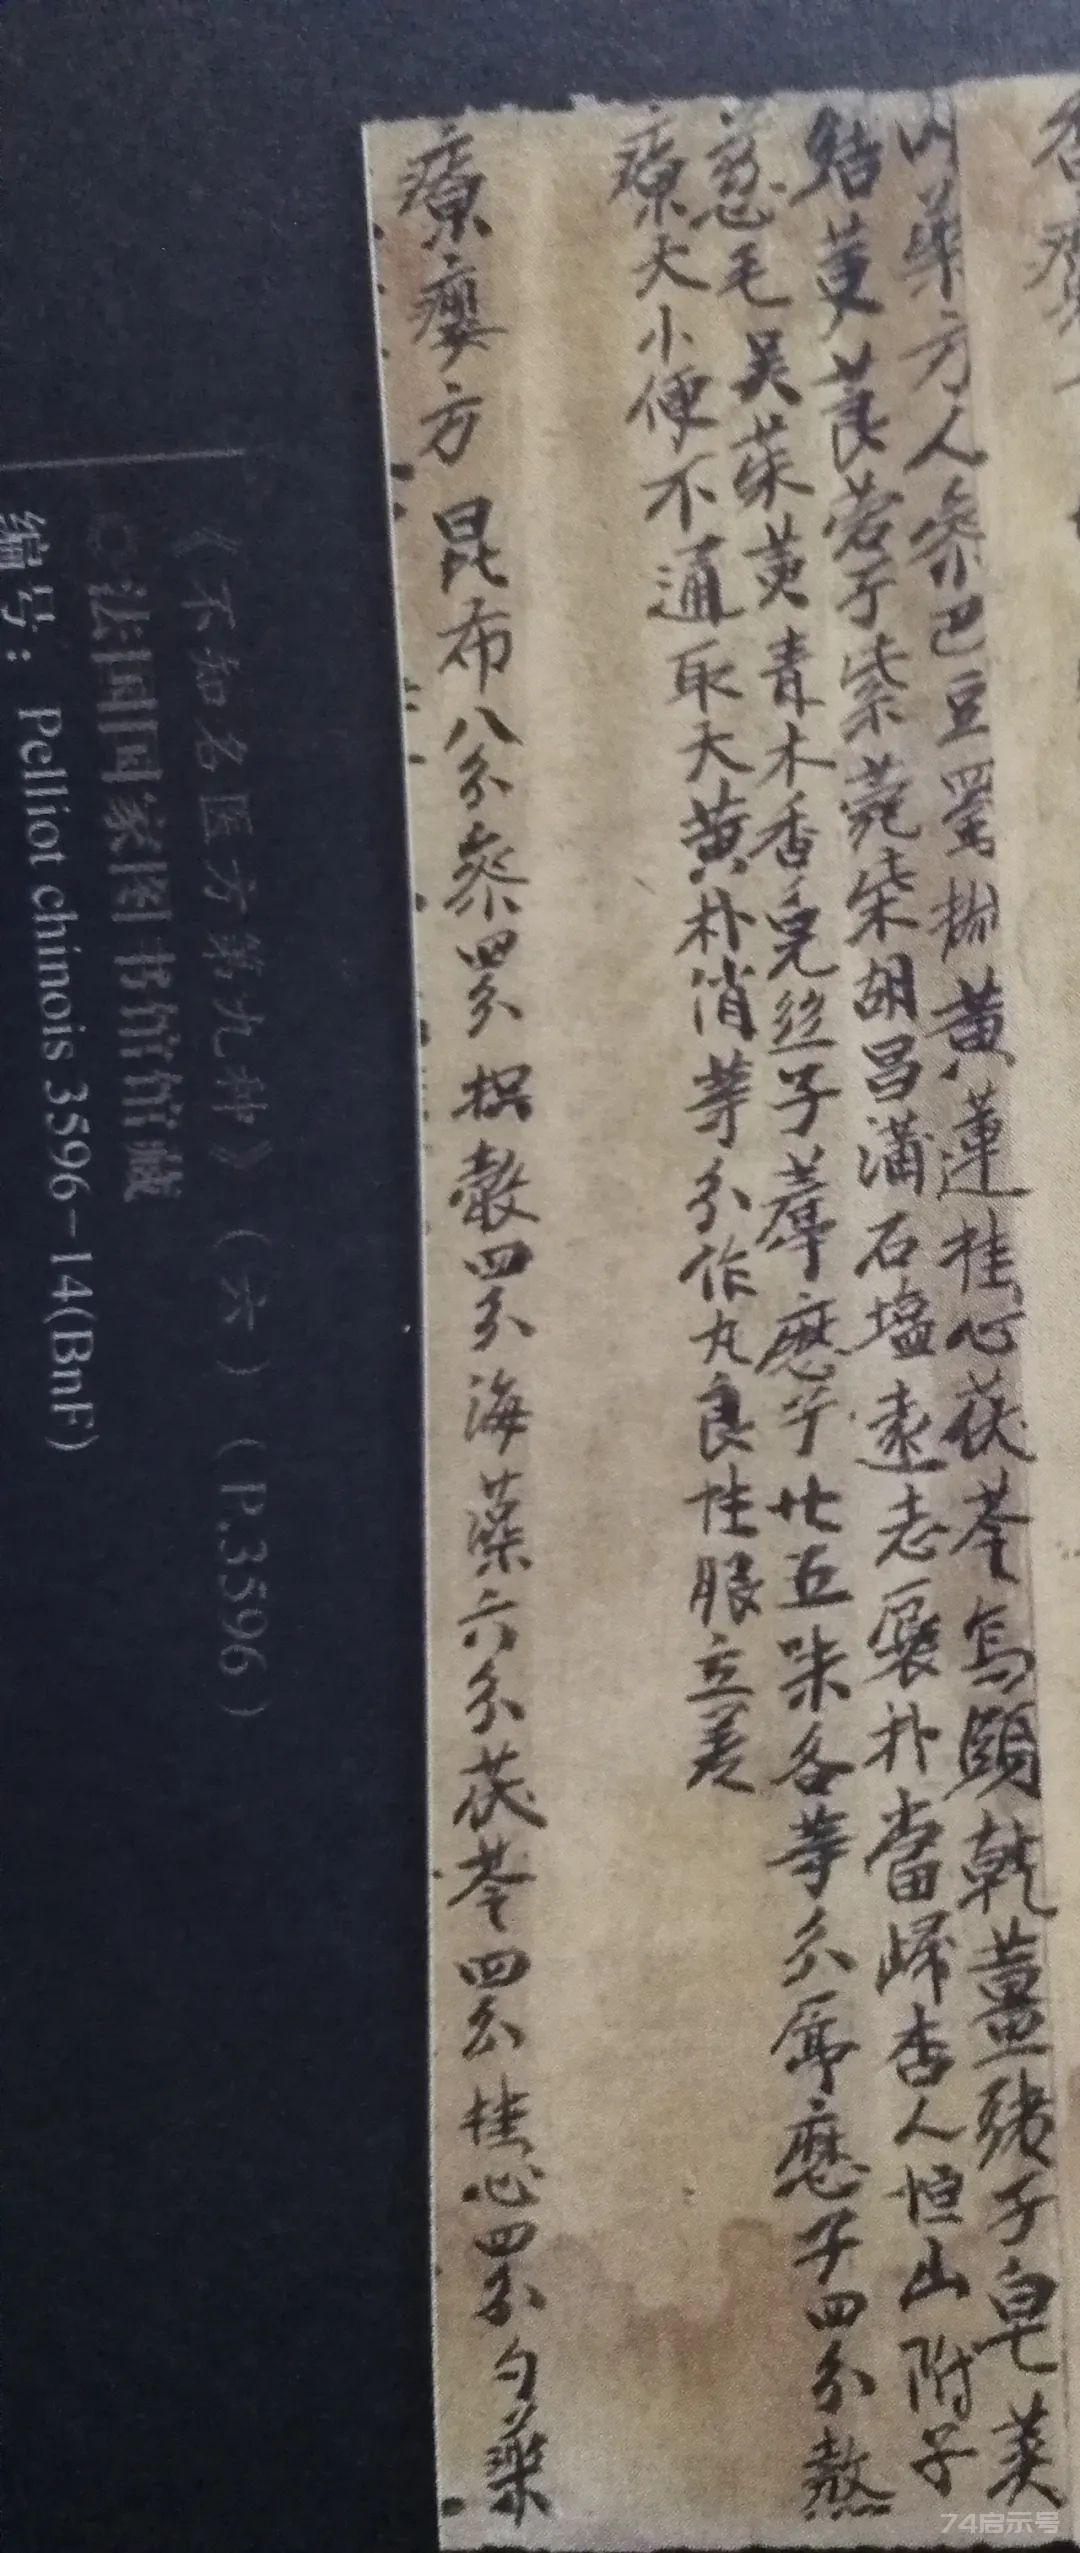 㕮藥方人參巴豆蜀椒黃蓮桂心茯苓烏頭乾薑豬子皂莢
結茰莨菪子紫菀柴胡昌蒲石塩遠志朴當歸杏人恒山附子
菟毛吳茱茰青木香兔丝子葶廳子廿五味各等分葶廳子四分熬
療大小便不通取大黃朴消等分作丸良性服立差
療癭方 昆布八分參四分㯶㲄四分海藻六分茯苓四分桂心四分勺藥
《不知名医方第九种》（六）（P.3596）
法国国家图书馆馆藏
编号：Pelliot chinois 3596-14(BnF)
74启示号